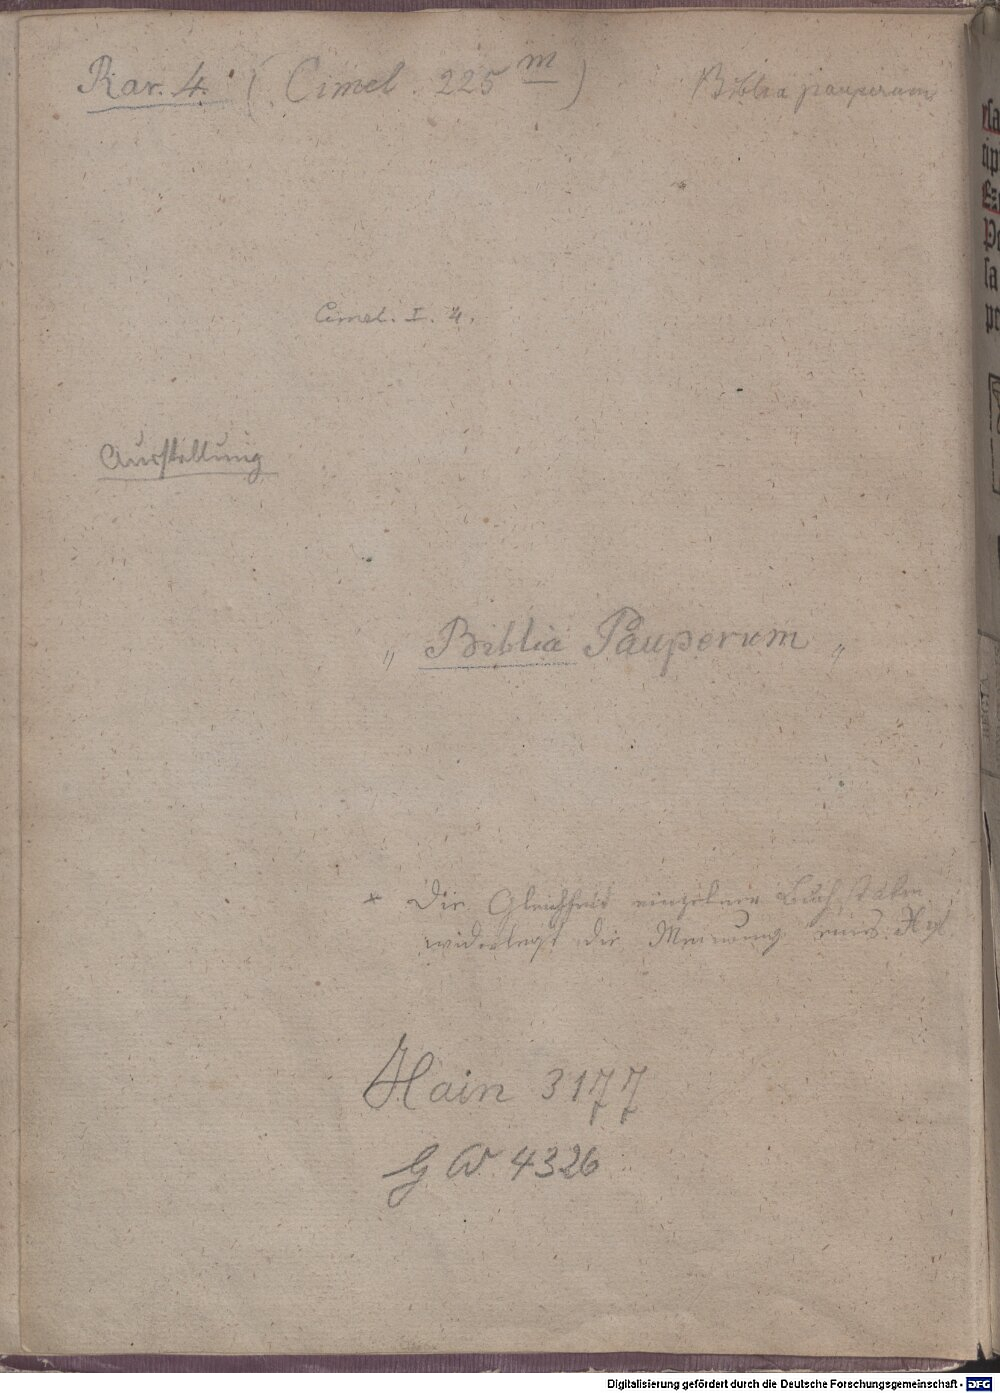 Rar. 4. (Cimel. 225 m)
Biblia pauperum
Cimel. I. 4.
Ausstellung
„ Biblia Pauperum „
* Die Gleichheit einzelner Buchstaben
widerlegt die Meinung eines
Hain 3177
GW 4326
Digitalisierung gefördert durch die Deutsche Forschungsgemeinschaft - DFG